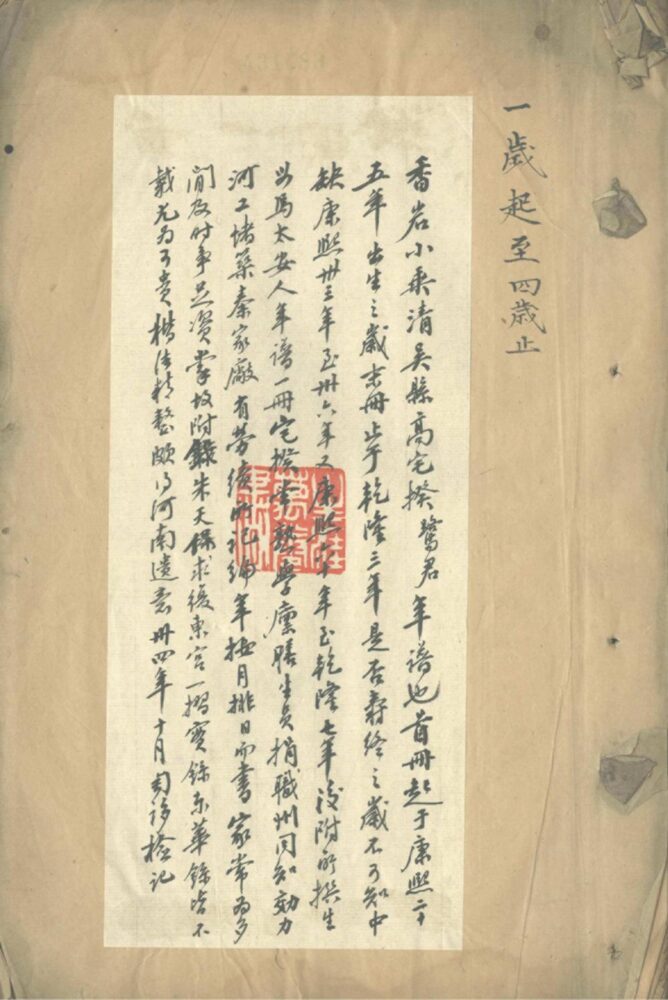 一歲起至四歲止
香岩小乘清吳縣高宅揆鷺君年譜也首冊起于康熙二十
五年出生之歲末冊止于乾隆三年是否壽終之歲不可知中
缺康熙卅三年至卅六年又康熙六十年至乾隆七年後附所撰生
母馬太安人年譜一冊宅揆常熟學廩膳生員捐職州同知効力
河工堵築秦家廠有勞績所記編年按月排日而書家常為多
間及時事足資掌故附錄朱天保求復東宮一摺實錄東華錄皆不
載尤為可貴楷法精整頗得河南遺意卅四年十月檢記